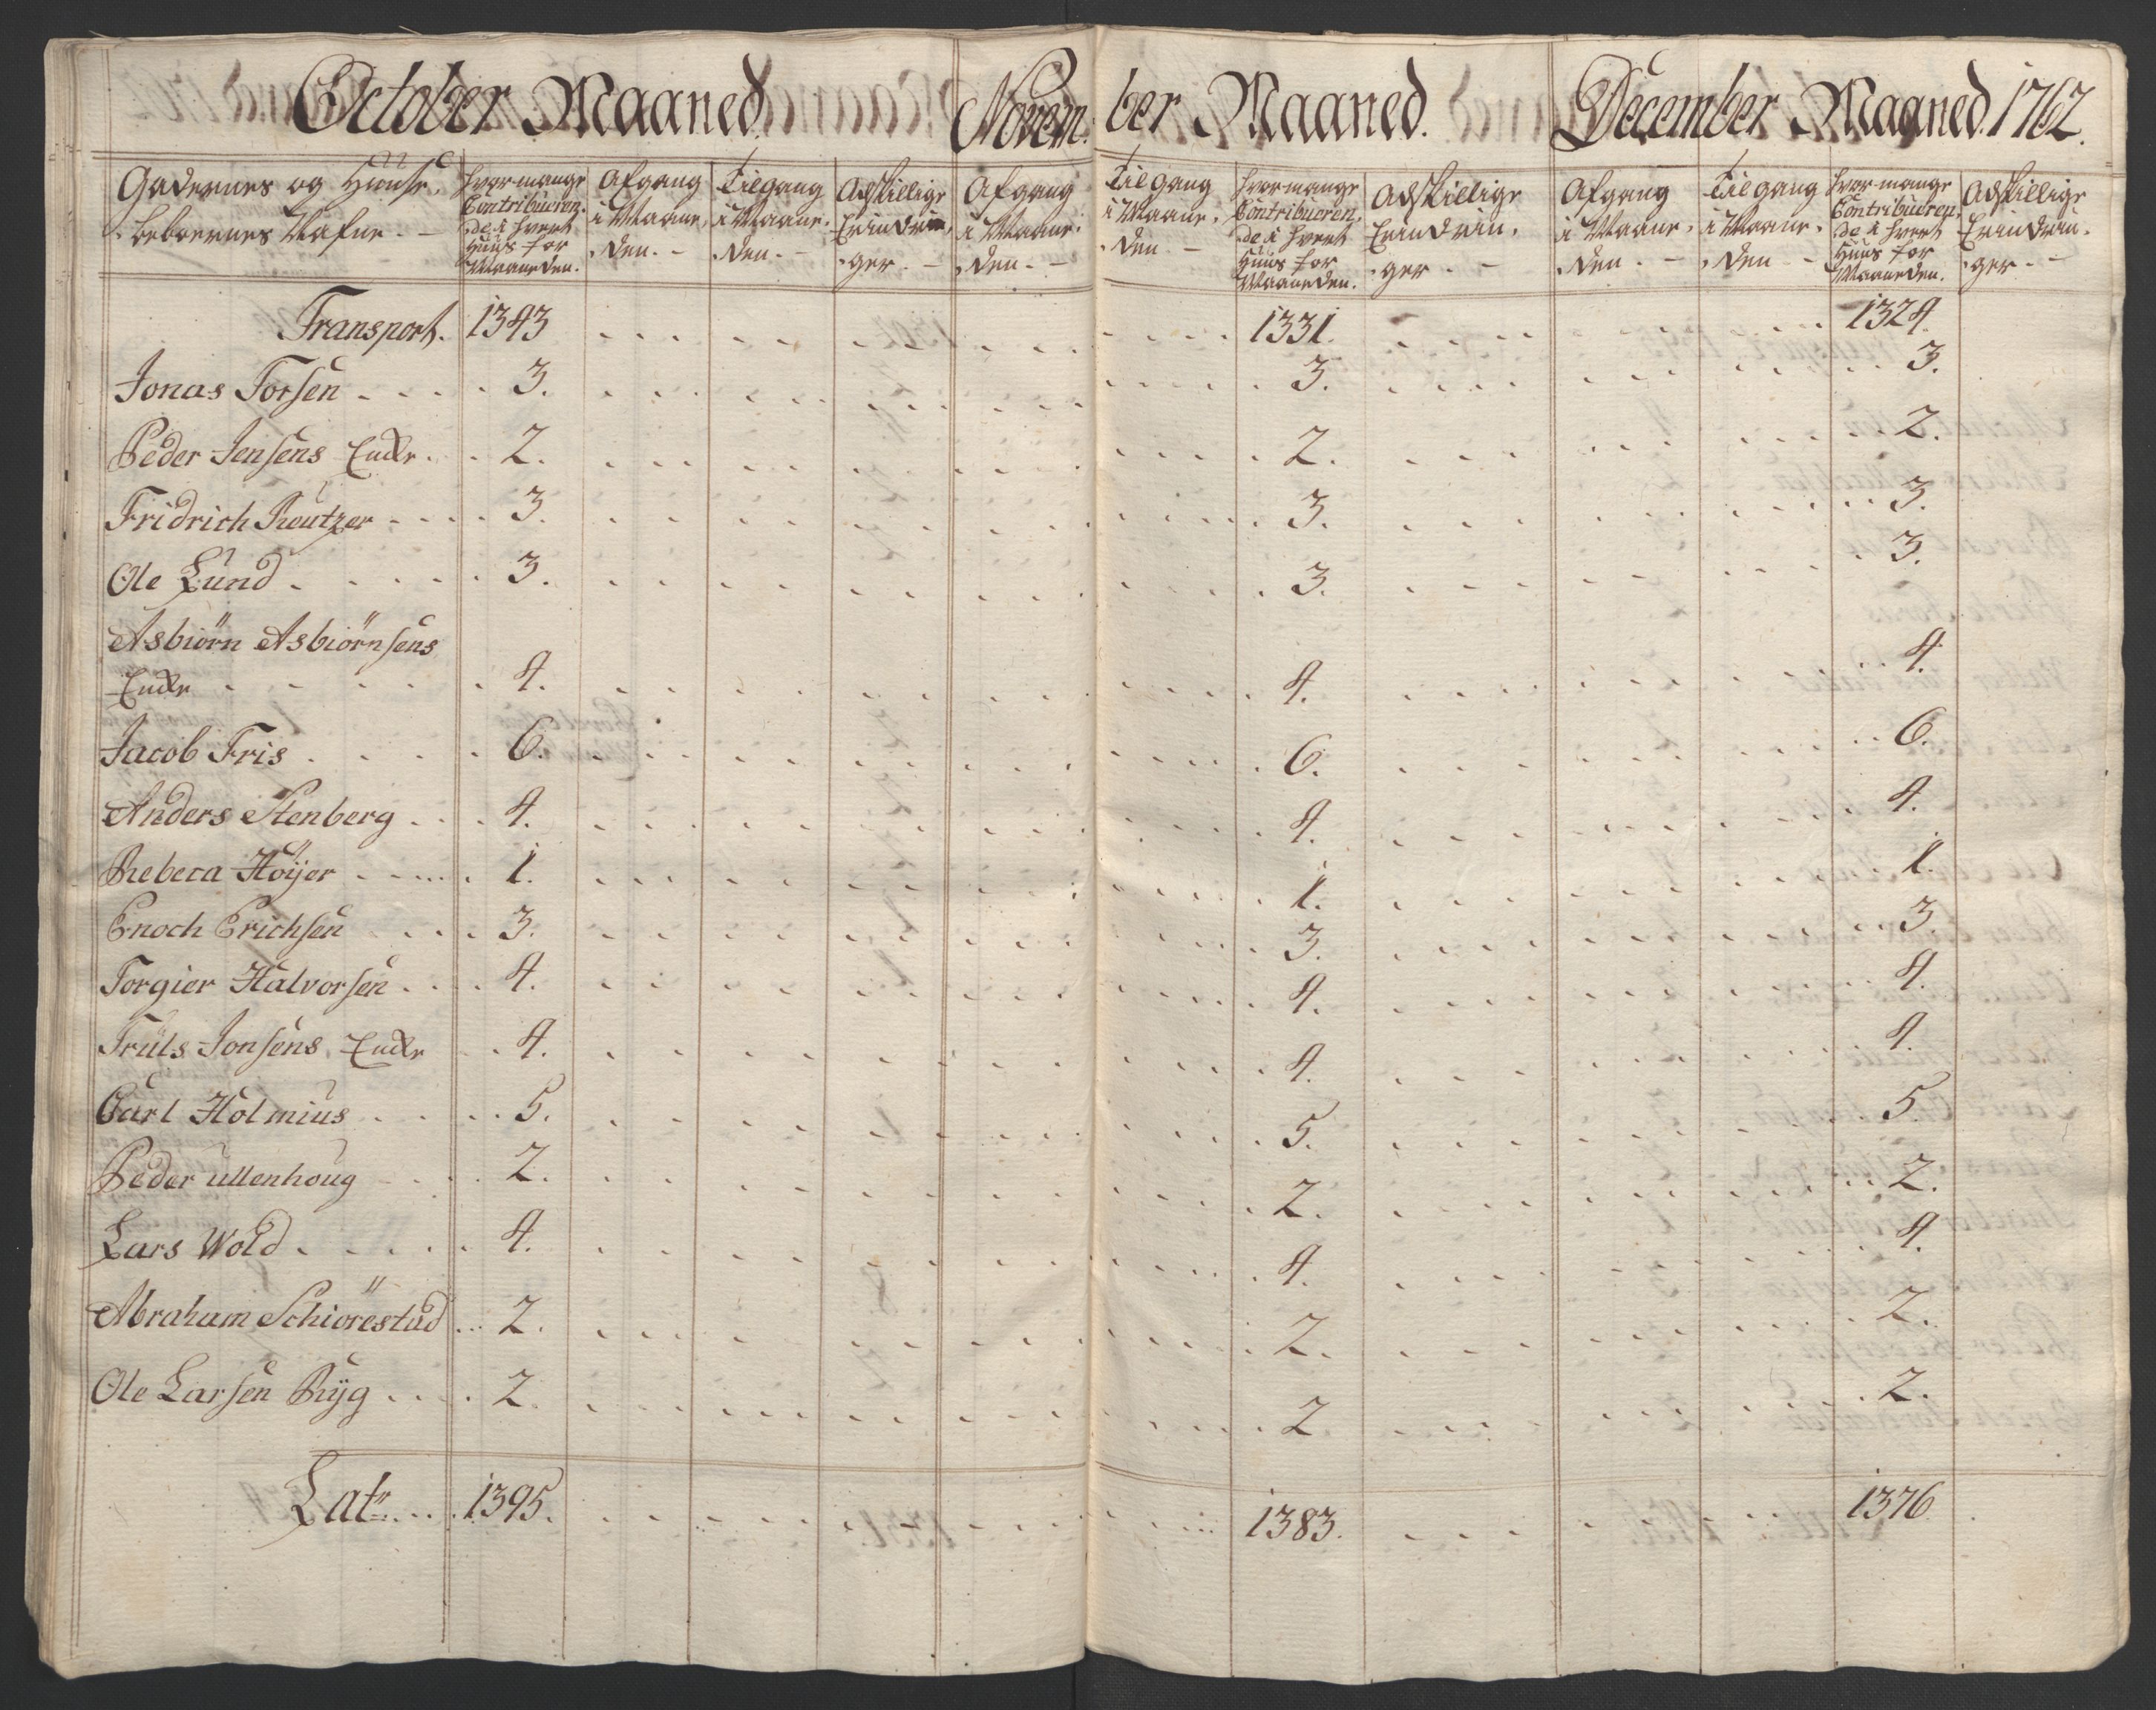 October Maaned. November Maaned. December Maaned. 1762.
Gadernes og Huuse, beboernes Nafne. | Hvormange Contribueren, de i hvert Huus for Maaneden. | Afgang i Maane, den. | Tilgang i Maane, den. | Adskillige Erindrin, ger. | Afgang i Maane, den. | Tilgang i Maane, den. | Hvormange Contribueren, de i hvert Huus for Maaneden. | Adskillige Erindrin, ger. | Afgang i Maane, den. | Tilgang i Maane, den. | Hvormange Contribueren, de i hvert Huus for Maaneden. | Adskillige Erindrin, ger.
Transport. 1343 1331. 1324.
Jonas Torsen 3. 3. 3.
Peder Jensens Encke 2. 2. 2.
Fridrich Reutzer 3. 3. 3.
Ole Lund 3. 3. 3.
Asbiörn Asbiörnsens
Encke 4. 4. 4.
Jacob Fris 6. 6. 6.
Anders Stenberg 4. 4. 4.
Rebeca Höyer 1. 1. 1.
Enoch Erichsen 3. 3. 3.
Torgier Halvorsen 4. 4. 4.
Truls Jonsens Encke 4. 4. 4.
Carl Holmius 5. 5. 5.
Peder ullenhoug 2. 2. 2.
Lars Wold 4. 4. 4.
Abraham Schiörestad 2. 2. 2.
Ole Larsen Ryg 2. 2 2.
Latr 1395. 1383. 1376